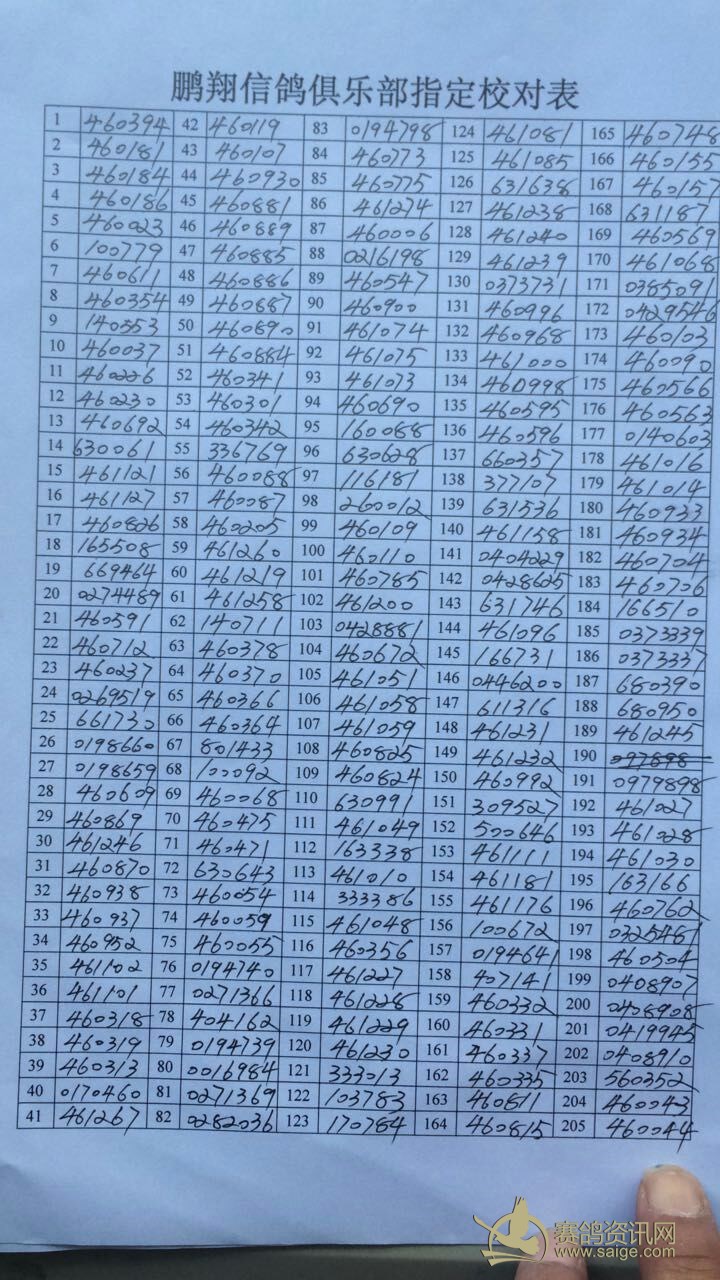 鹏翔信鸽俱乐部指定校对表
1 460394 42 460119 83 0194798 124 461081 165 460748
2 460181 43 460107 84 460773 125 461085 166 460155
3 460184 44 460930 85 460775 126 631638 167 460157
4 460186 45 460881 86 461274 127 461238 168 631187
5 460023 46 460889 87 460006 128 461240 169 460569
6 100779 47 460885 88 0216198 129 461239 170 461068
7 460611 48 460886 89 460547 130 0373731 171 0385091
8 460354 49 460887 90 460900 131 460996 172 0429546
9 140553 50 460890 91 461074 132 460968 173 460103
10 460037 51 460884 92 461075 133 461000 174 460090
11 460226 52 460341 93 461073 134 460998 175 460566
12 460230 53 460301 94 460690 135 460595 176 460563
13 460692 54 460342 95 160088 136 460596 177 0140603
14 630061 55 336769 96 630628 137 660357 178 461016
15 461121 56 460088 97 116181 138 377107 179 461014
16 461127 57 460087 98 260012 139 631536 180 460933
17 460826 58 460205 99 460109 140 461158 181 460934
18 165508 59 461260 100 460110 141 0404229 182 460704
19 669464 60 461219 101 460785 142 0428625 183 460706
20 0274489 61 461258 102 461200 143 631746 184 166510
21 460591 62 140711 103 0428881 144 461096 185 0373339
22 460712 63 460378 104 460672 145 166731 186 0373337
23 460237 64 460370 105 461051 146 0446200 187 680390
24 0269519 65 460366 106 461058 147 611316 188 680950
25 661730 66 460364 107 461059 148 461231 189 461245
26 0198660 67 801433 108 460825 149 461232 190 097898
27 0198659 68 100092 109 460824 150 460992 191 0979898
28 460609 69 460068 110 630991 151 309527 192 461027
29 460869 70 460475 111 461049 152 500646 193 461028
30 461246 71 460471 112 163338 153 461111 194 461030
31 460870 72 630643 113 461010 154 461181 195 163166
32 460938 73 460054 114 333386 155 461176 196 460762
33 460937 74 460059 115 461048 156 100672 197 0325481
34 460952 75 460055 116 460356 157 0194641 198 460504
35 461102 76 0194740 117 461227 158 407141 199 0408907
36 461101 77 0271366 118 461228 159 460332 200 0408908
37 460318 78 404162 119 461229 160 460331 201 0419945
38 460319 79 0194739 120 461230 161 460337 202 0408910
39 460313 80 0016984 121 333013 162 460335 203 560352
40 0170460 81 0271369 122 103783 163 460811 204 460043
41 461267 82 0282036 123 170784 164 460815 205 460044
赛鸽资讯网
www.saige.com